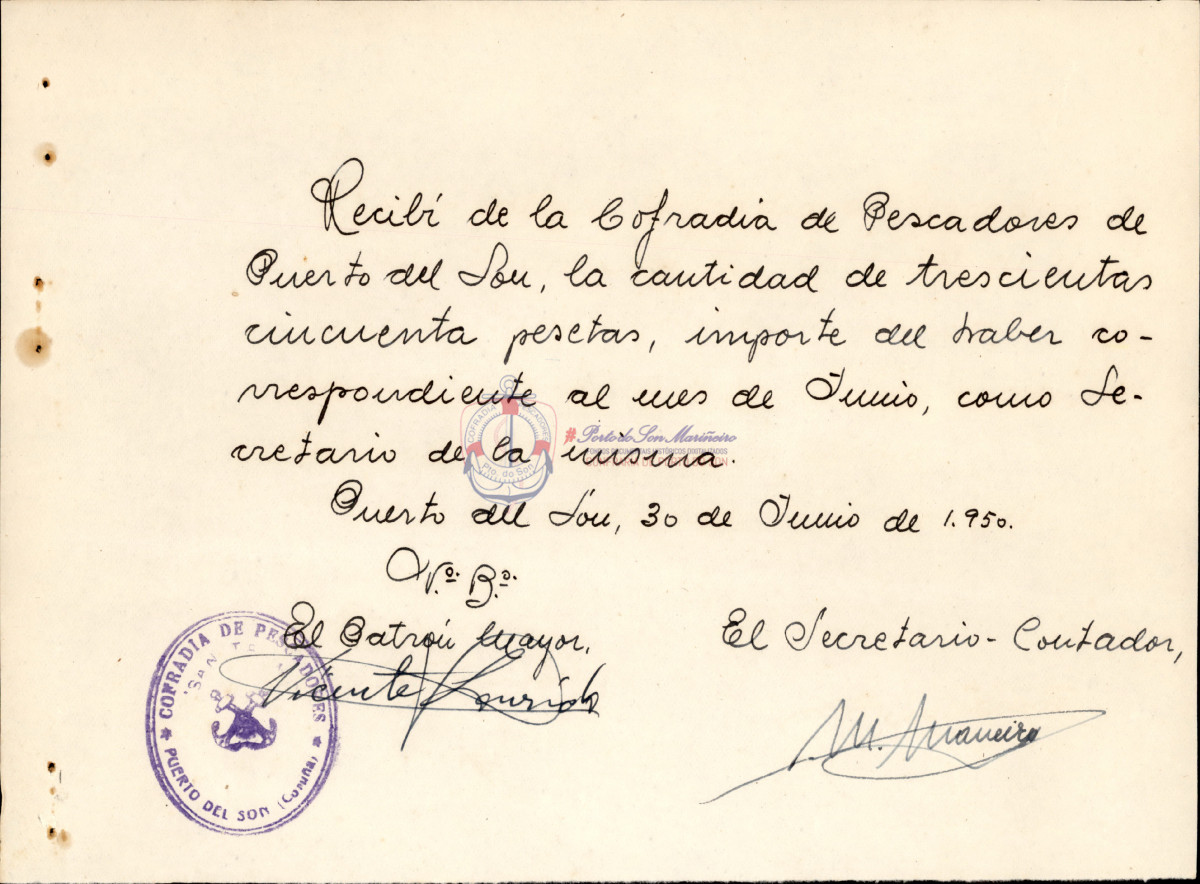 Recibí de la Cofradia de Pescadores de
Puerto del Son, la cantidad de trescientas
cincuenta pesetas, importe del haber co-
rrespondiente al mes de Junio, como Se-
cretario de la misma.
COFRADIA PESCADORES
Pto. do Son
# Porto do Son Mariñeiro
Puerto del Són, 30 de Junio de 1.950.
Vº. Bº.
El Patrón Mayor,
El Secretario-Contador,
Vicente
M. Maneiro
COFRADIA DE PESCADORES
PUERTO DEL SON (Coruña)